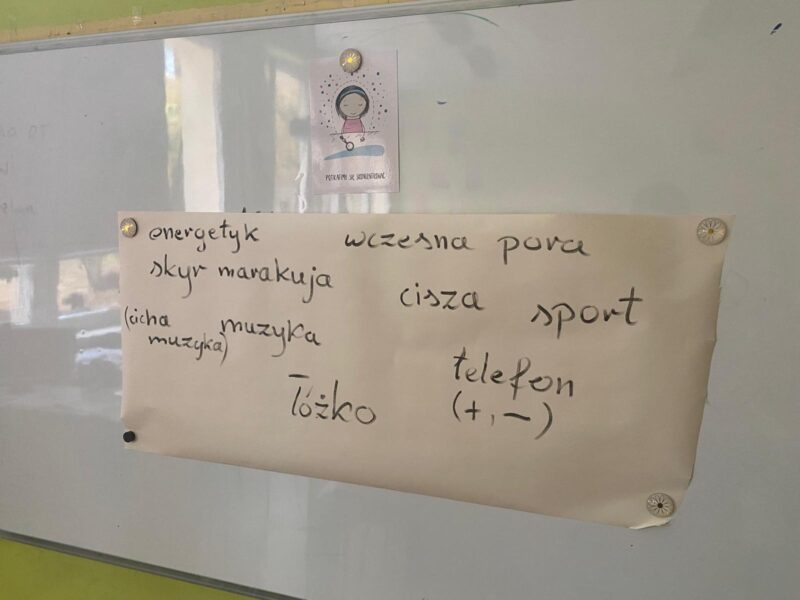 POTRAFIMY SIĘ SKONCENTROWAĆ
energetyk
wczesna pora
skyr marakuja
cisza
sport
(cicha
muzyka)
muzyka
telefon
(+, -)
łóżko